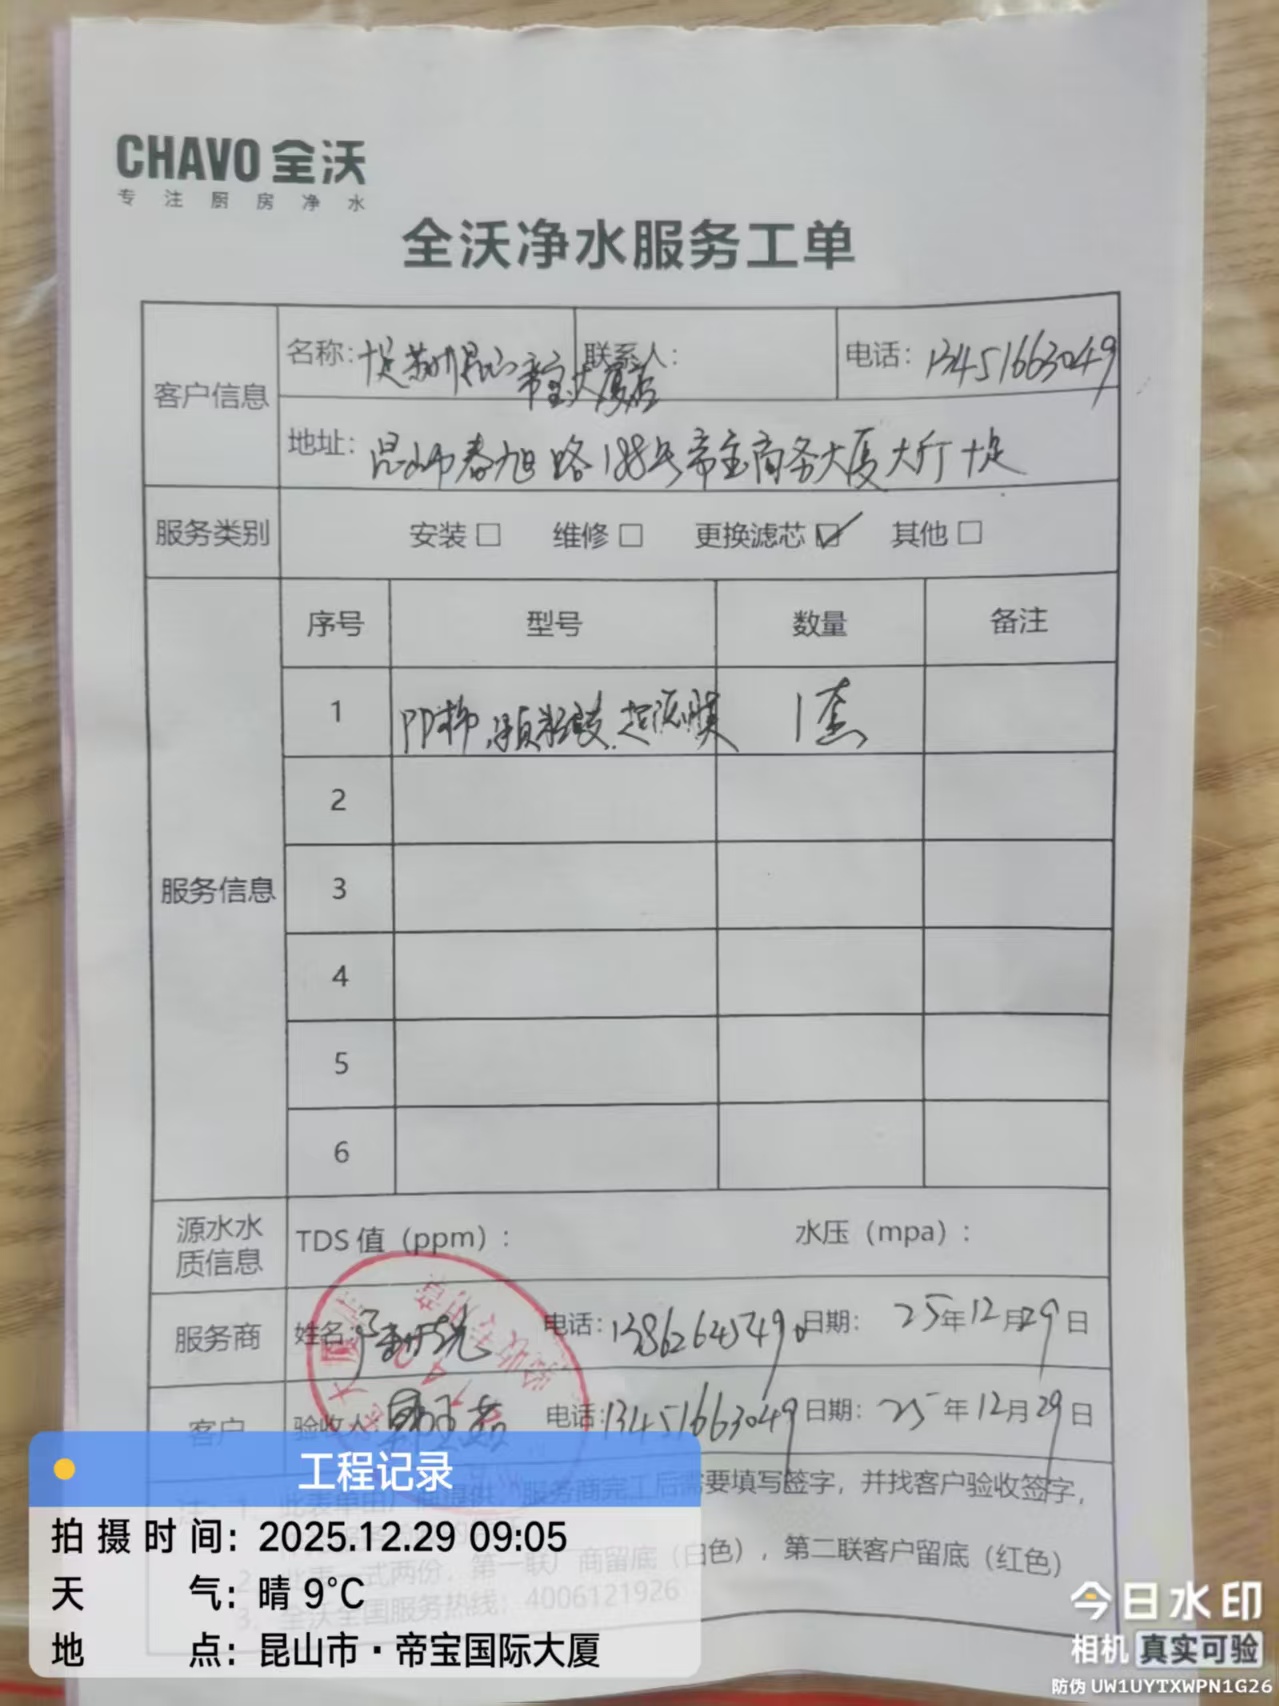 CHAVO 全沃
专注厨房净水
全沃净水服务工单
客户信息
名称: 十足苏州昆山帝宝大厦店
联系人:
电话: 13451663049
地址: 昆山市春旭路188号帝宝商务大厦大厅十足
服务类别 安装□ 维修□ 更换滤芯☑ 其他□
服务信息
序号 型号 数量 备注
1 PP棉.颗粒炭.超滤膜 1套
2
3
4
5
6
源水水质信息 TDS 值（ppm）: 水压（mpa）:
服务商 姓名: 电话: 13862645490 日期: 25年12月29日
客户 验收人: 电话: 13451663049 日期: 25年12月29日
注: 1、此表单由厂商提供，服务商完工后需要填写签字，并找客户验收签字，
2、此表一式两份，第一联厂商留底（白色），第二联客户留底（红色）
3、全沃全国服务热线: 4006121926
工程记录
拍摄时间: 2025.12.29 09:05
天气: 晴 9°C
地点: 昆山市·帝宝国际大厦
今日水印
相机 真实可验
防伪 UW1UYTXWPN1G26